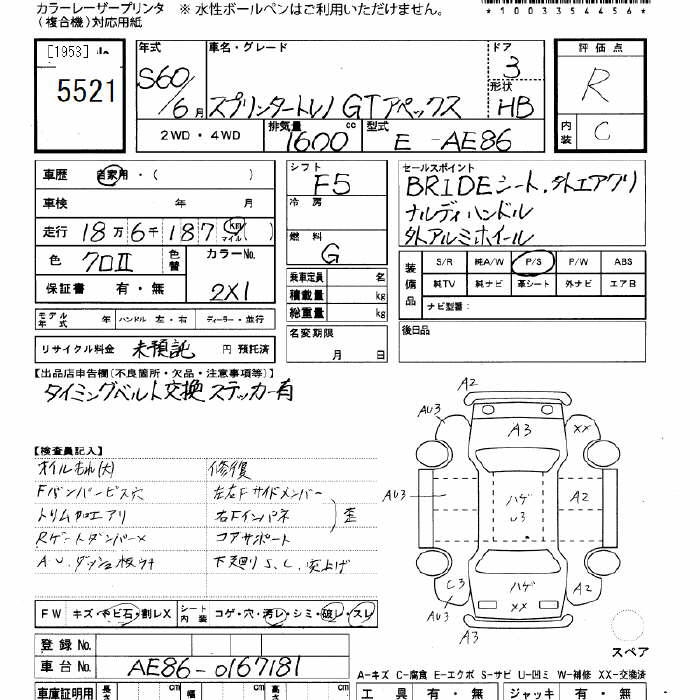 カラーレーザープリンタ ※ 水性ボールペンはご利用いただけません。
(複合機)対応用紙
*1003354456*
[1953]
5521
年式 車名・グレード ドア 評価点
S60/6月 スプリンタートレノ GTアペックス 3 R
形状 HB
2WD・4WD 排気量 1600 cc 型式 E-AE86 内装 C
車歴 自家用・( )
車検 年 月
走行 18万6千187 km マイル ( )
色 クロII 色替 カラーNo.
保証書 有・無 2X1
モデル年式 年 ハンドル 左・右 ディーラー・並行
リサイクル料金 未預託 円 預託済
シフト F5
冷房
燃料 G
乗車定員 名
積載量 kg
総重量 kg
名変期限
月 日
セールスポイント
BRIDEシート.外エアクリ
ナルディハンドル
外アルミホイール
装備品 S/R 純A/W P/S P/W ABS
純TV 純ナビ 革シート 外ナビ エアB
ナビ型番:
後日品
【出品店申告欄(不良箇所・欠品・注意事項等)】
タイミングベルト交換 ステッカー有
【検査員記入】
オイルもれ(大) 修復
Fバンパービス穴 左右Fサイドメンバー
トリム加工アリ 右Fインパネ 歪
Rゲートダンパー× コアサポート
A.U.ダッシュ板ウキ 下廻りS.C.突上げ
FW キズ・ヤビ石・割レX シート内装 コゲ・穴・汚レ・シミ・破レ・スレ
登録 No.
車台 No. AE86-0167181
車庫証明用 cm cm cm
A2
AU3
A3
XX
AU3
ハゲ
U3
A2
C3
AU3
ハゲ
XX
A2
A3
スペア
A-キズ C-腐食 E-エクボ S-サビ U-凹ミ W-補修 XX-交換済
工具 有・無 ジャッキ 有・無